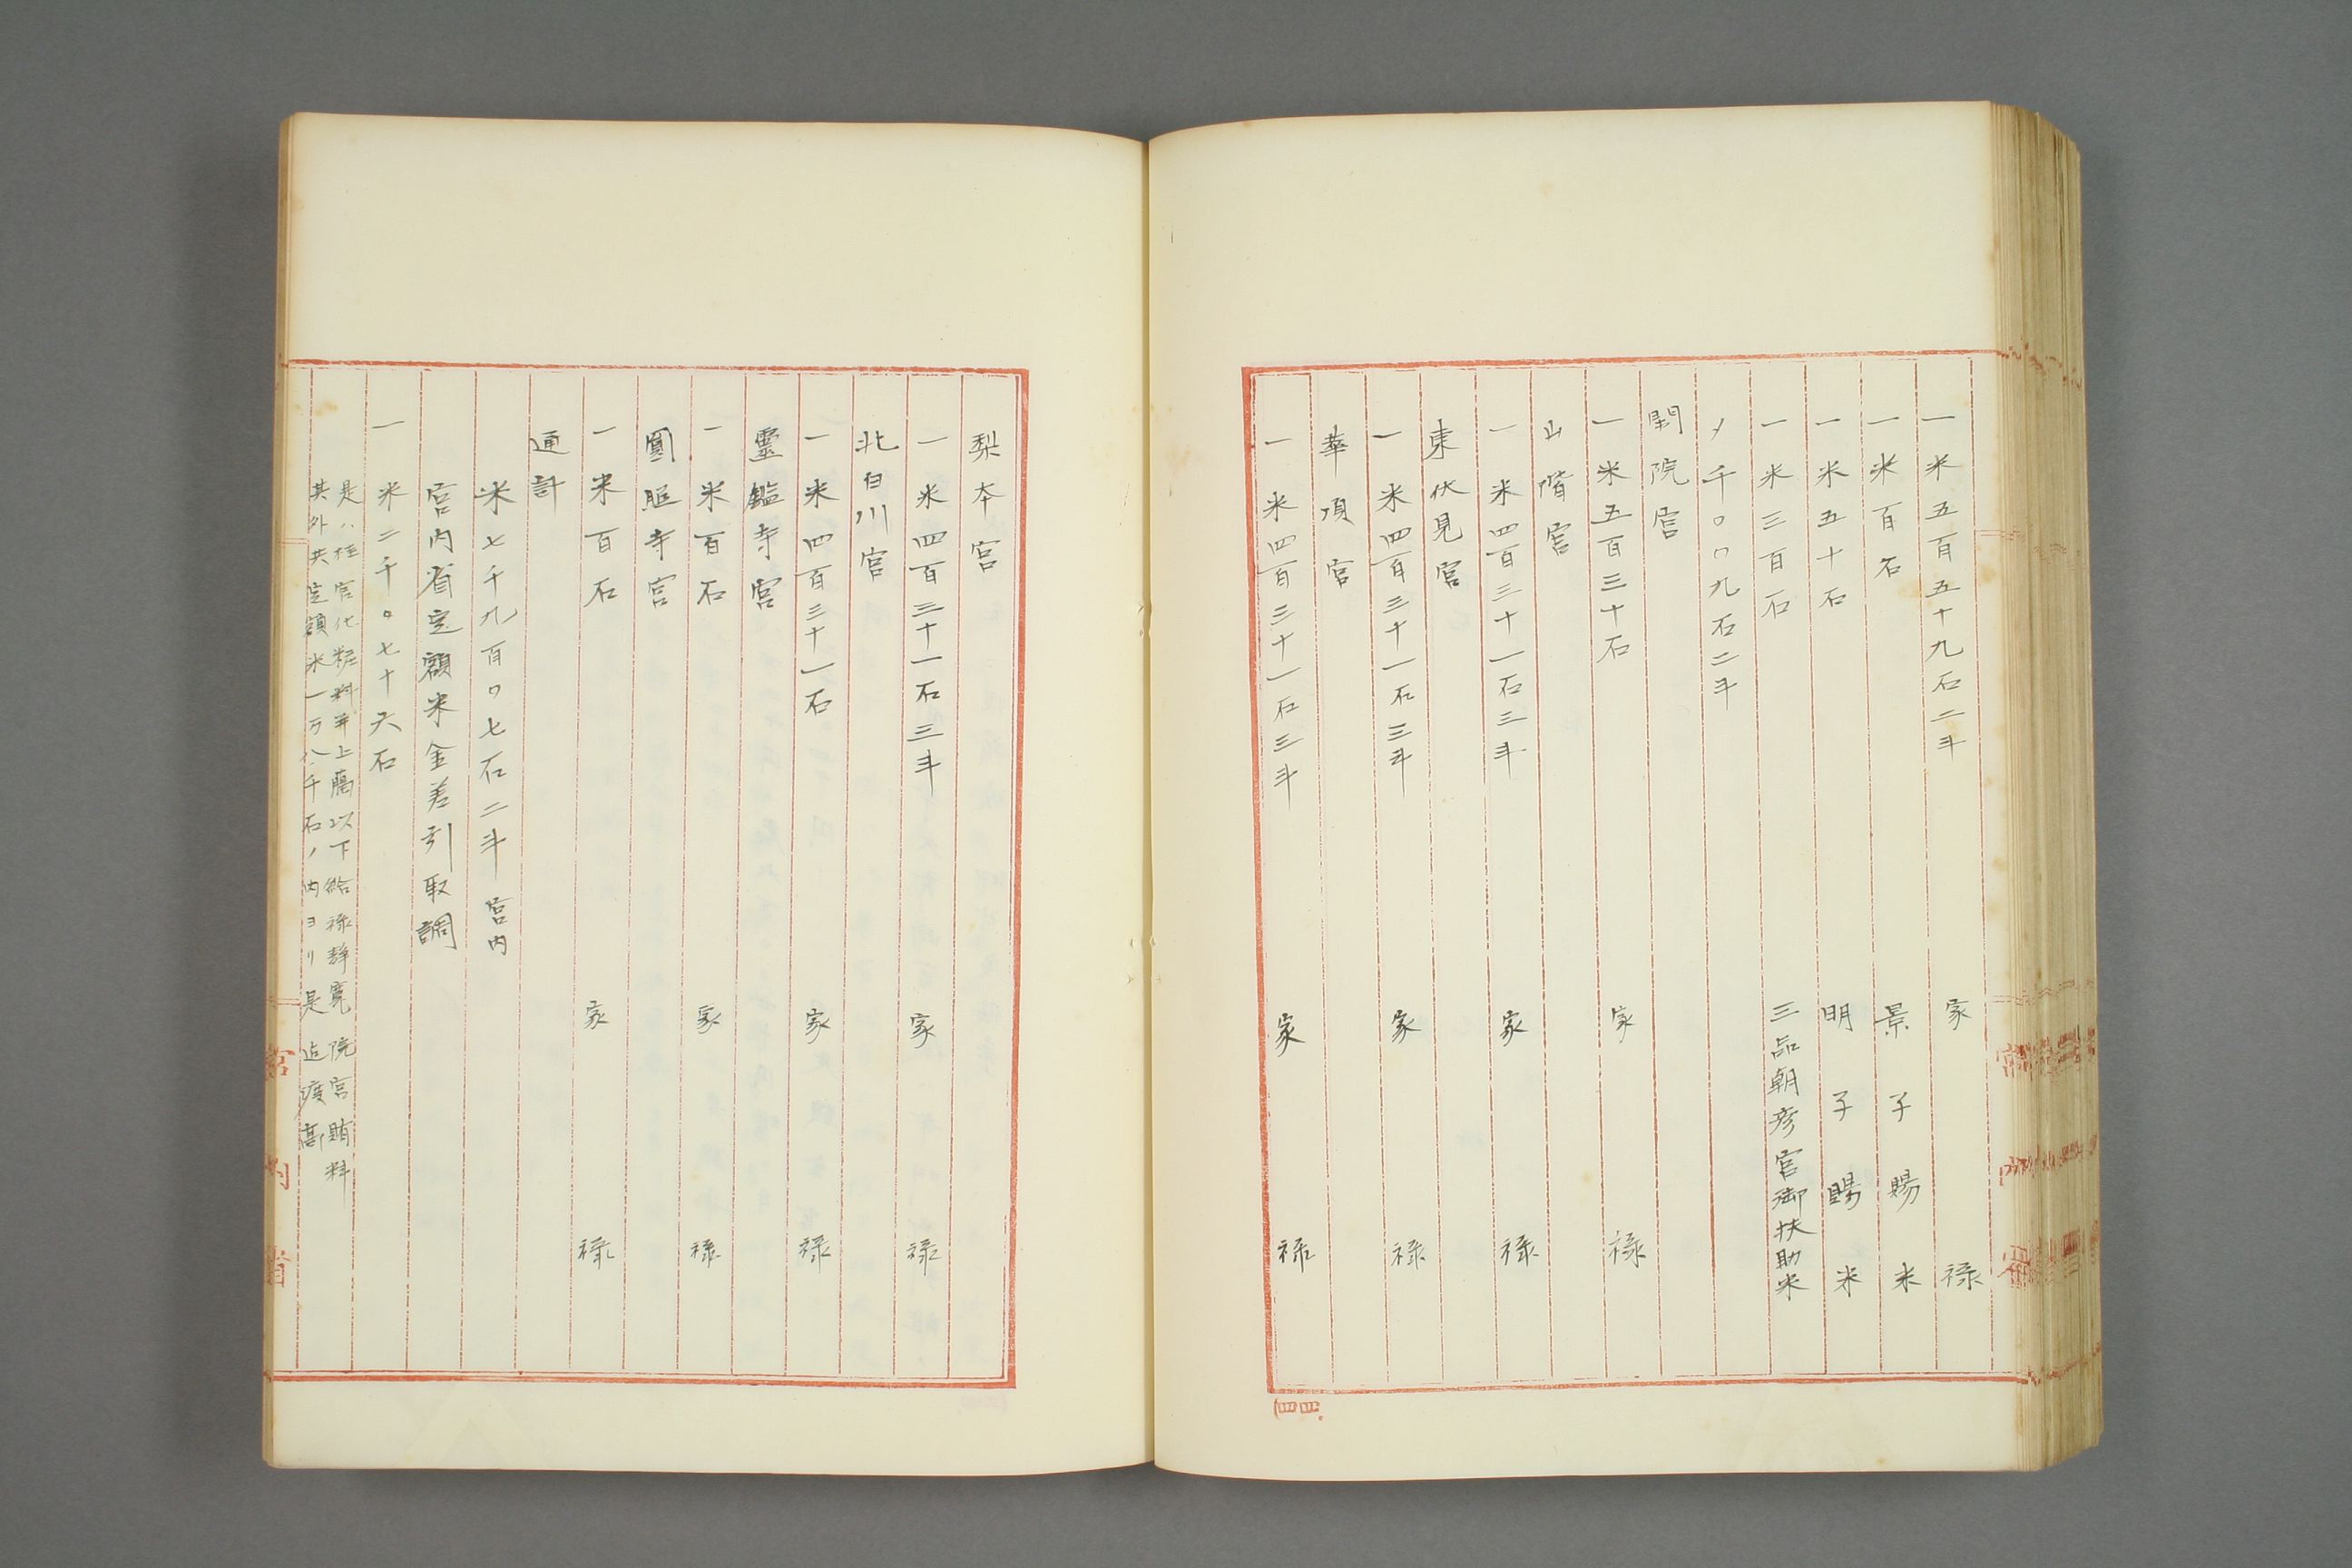 一米五百五十九石二斗 家禄
一米百石 景子賜米
一米五十石 明子賜米
一米三百石 三品朝彦宮御扶助米
〆千〇〇九石二斗
閑院宮
一米五百三十石 家禄
山階宮
一米四百三十一石三斗 家禄
東伏見宮
一米四百三十一石三斗 家禄
華頂宮
一米四百三十一石三斗 家禄
四四
梨本宮
一米四百三十一石三斗 家禄
北白川宮
一米四百三十一石 家禄
靈鑑寺宮
一米百石 家禄
圓照寺宮
一米百石 家禄
通計
米七千九百〇七石二斗 宮内
宮内省定額米金差引取調
一米二千〇七十六石
是ハ桂宮化粧料并上臈以下給禄静寛院宮賄料
其外共定額米一万八千石ノ内ヨリ是迄渡高
宮内省